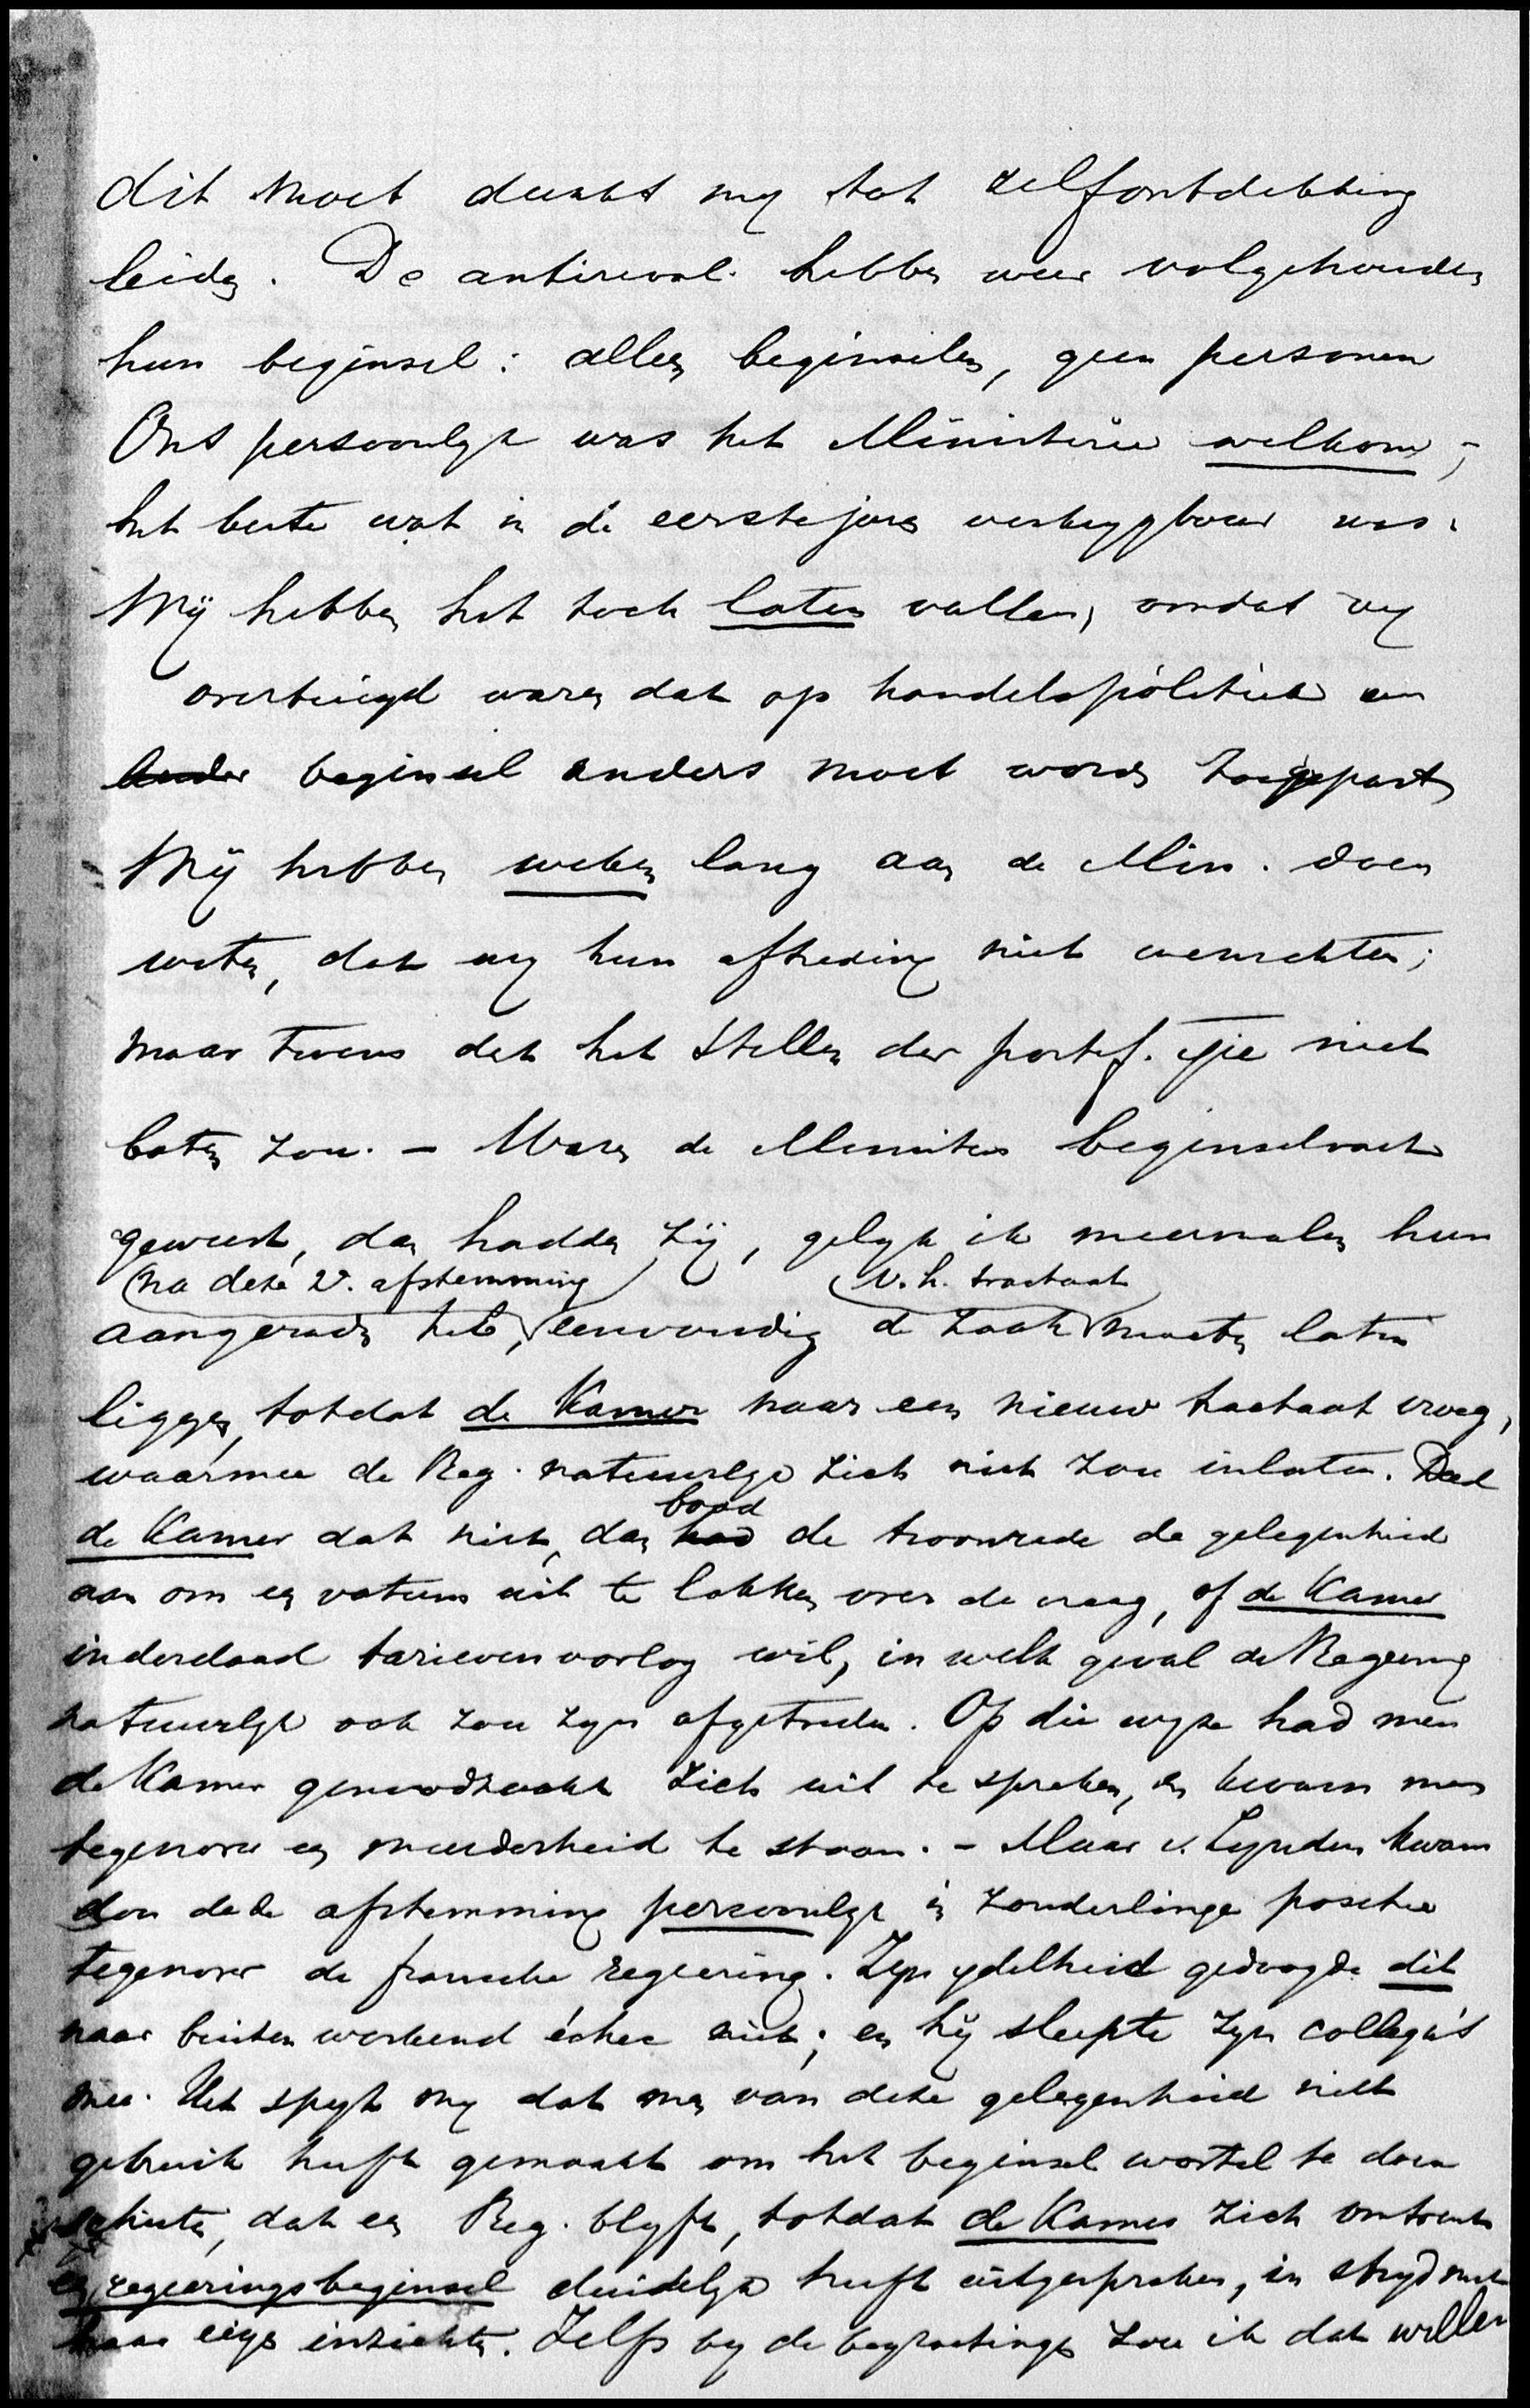 dit moet dunkt my tot zelfontdekking
leiden. De antirevol. hebben weer volgehouden
hun beginsel: alleen beginselen, geen personen
Ons persoonlyk was het Ministerie welkom;
het beste wat in de eerste jaren verkrygbaar was.
Wij hebben het toch laten vallen, omdat wy
overtuigd waren dat op handelspolitiek een
beginsel anders moet worden toegepast
Wij hebben weken lang aan de Min. doen
weten, dat wy hun aftreding niet wenschten;
maar tevens dat het stellen der portef. qie niet
baten zou. – Waren de Ministers beginselvast
geweest, dan hadden zij, gelyk ik meermalen hun
na deze 2e. afstemming v. h. tractaat
aangeraden heb, eenvoudig de zaak moeten laten
liggen, totdat de Kamer naar een nieuw tractaat vroeg,
waarmee de Reg. natuurlyk zich niet zou inlaten. Deed
de Kamer dat niet, dan had bood de troonrede de gelegenheid
aan om een votum uit te lokken over de vraag, of de Kamer
inderdaad tarievenoorlog wil, in welk geval de Regering
natuurlyk ook zou zyn afgetreden. Op die wyze had men
de Kamer genoodzaakt zich uit te spreken, en kwam men
tegenover een meerderheid te staan. – Maar v. Lynden kwam
door deze afstemming persoonlyk in zonderlinge positie
tegenover de fransche regeering. Zyn ydelheid gedoogde dit
naar buiten werkend échec niet; en hij sleepte zyn collega's
mee. Het spyt my dat men van deze gelegenheid niet
gebruik heeft gemaakt om het beginsel wortel te doen
schieten, dat een Reg. blyft, totdat de Kamer zich omtrent
een regeeringsbeginsel duidelyk heeft uitgesproken, in stryd met
haar eigen inzichten. Zelfs by de begrootingen zou ik dat willen